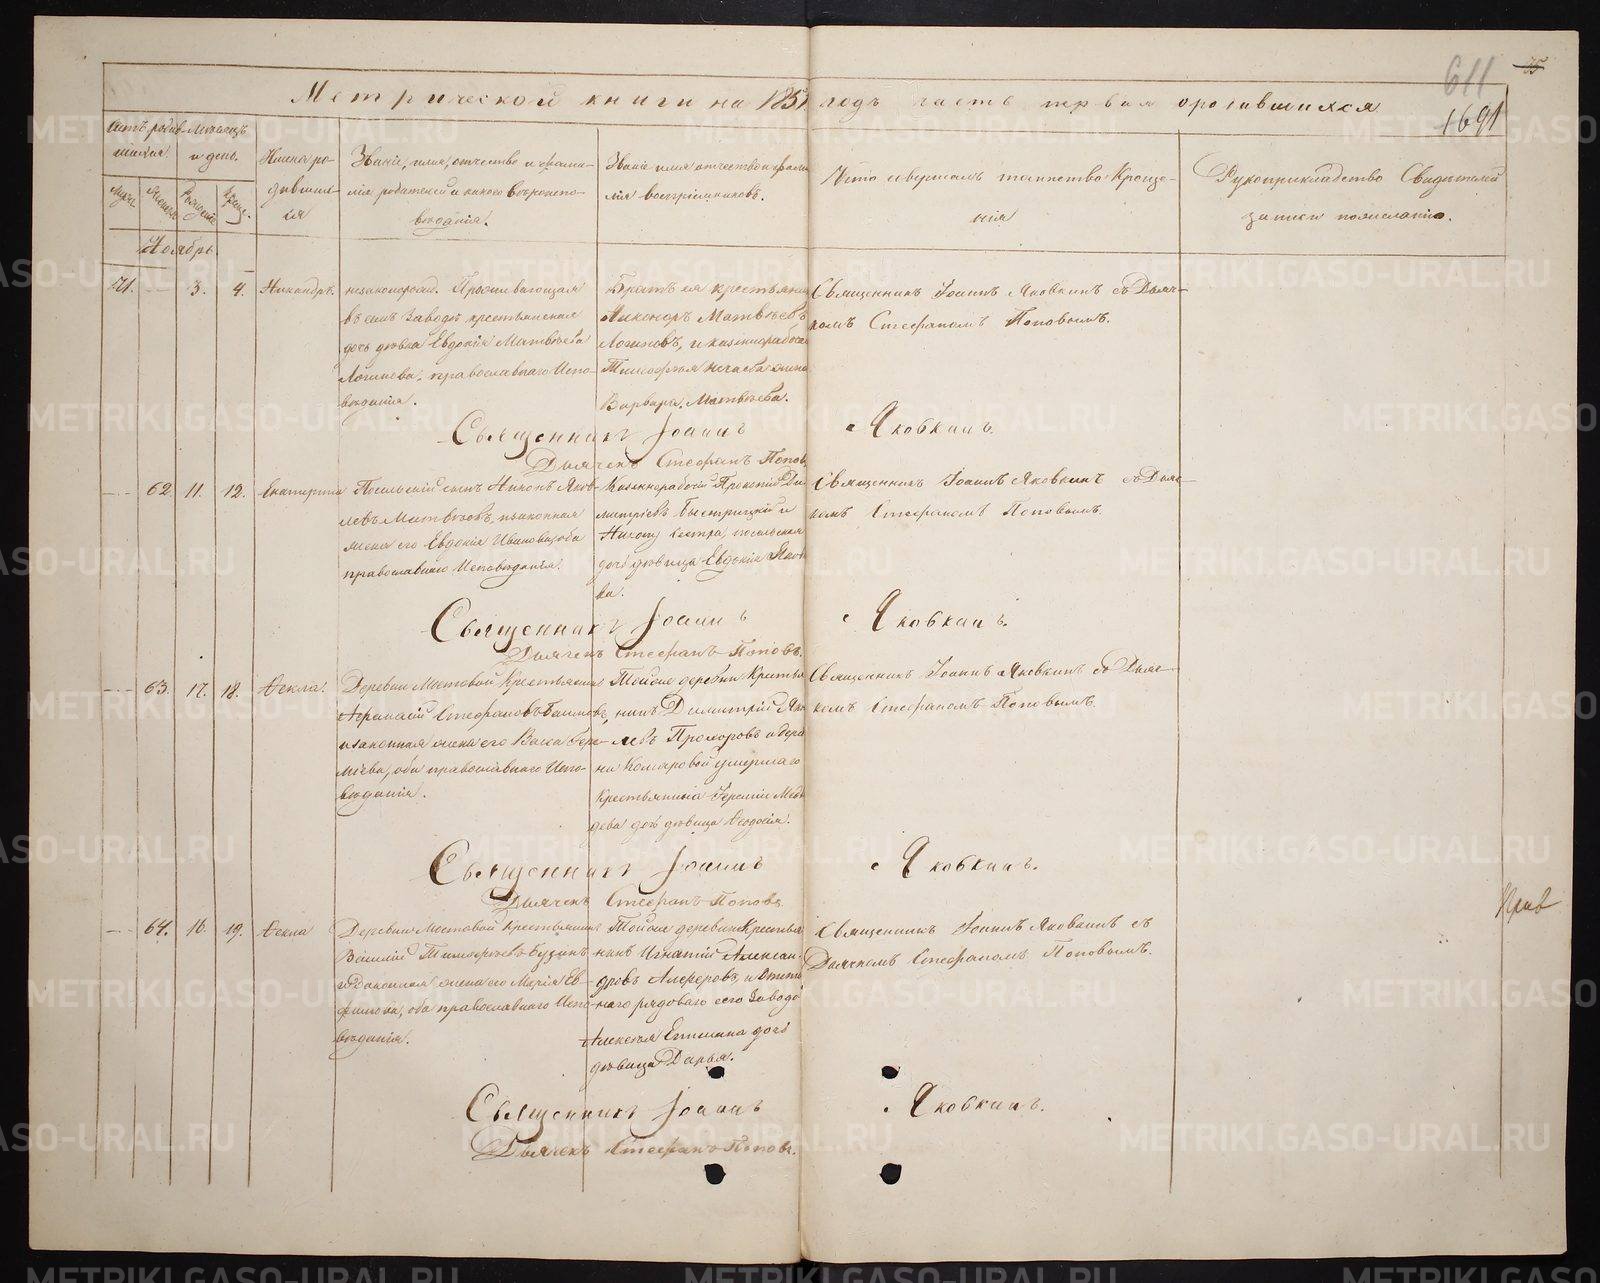 611
35
1691
Метрической книги на 1851 годъ часть первая о родившихся
Счетъ родив-
шихся
Мѣсяцъ
и день.
Имена ро-
дивших-
ся
Званіе, имя, отчество и фами-
лія родителей и какого вѣроиспо-
вѣданія.
Званіе имя отчество и фами
лія воспріемниковъ.
Кто совершалъ таинство Креще-
нія
Рукоприкладство Свидѣтелей
записи по желанію.
Ноябрь.
71. 3. 4. Никандръ.
незаконорожд. Проживающая
въ семъ Заводѣ крестьянская
дочь дѣвка Евдокія Матвѣева
Логинова, православнаго Испо-
вѣданія.
Братъ ея крестьянинъ
Никоноръ Матвѣевъ
Логиновъ, и
Тимофея жена
Варвара Матвѣева.
Священникъ Іоаннъ Яковкинъ съ Дьяч-
комъ Стефаномъ Поповымъ.
Священникъ Іоаннъ Яковкинъ
Дьячекъ Стефанъ Поповъ
62. 11. 12. Екатерина
сынъ Никонъ Яков-
левъ Матвѣевъ, и законная
жена его Евдокія Иванова, оба
православнаго Исповѣданія.
Прокопій Ди
митріевъ Быстрицкій и
сестра,
дочь дѣвица Евдокія Яков
ва.
Священникъ Іоаннъ Яковкинъ съ Дьяч-
комъ Стефаномъ Поповымъ.
Священникъ Іоаннъ Яковкинъ.
Дьячекъ Стефанъ Поповъ.
63. 17. 18. Ѳекла.
Деревни Мостовой Крестьянинъ
Афанасій Стефановъ
и законная жена его Васса Ере-
мѣева, оба православнаго Испо-
вѣданія.
Тойже деревни Крестья
нинъ Димитрій Яков
левъ Прохоровъ и дерев
ни Комаровой умершаго
Крестьянина Іереміи
дочь дѣвица Ѳеодосія.
Священникъ Іоаннъ Яковкинъ съ Дьяч-
комъ Стефаномъ Поповымъ.
Священникъ Іоаннъ Яковкинъ.
Дьячекъ Стефанъ Поповъ
64. 16. 19. Ѳекла
Деревни Мостовой Крестьянинъ
Василій Тимофѣевъ Бузинъ
и законная жена его Марія Ев-
фимова, оба православнаго Испо-
вѣданія.
Тойже деревни Крестья
нинъ Игнатій Алексан-
дровъ Алферовъ, и Отстав
наго рядоваго сего Завода
Алексѣя дочь
дѣвица Дарья.
Священникъ Іоаннъ Яковкинъ съ
Дьячкомъ Стефаномъ Поповымъ.
Священникъ Іоаннъ Яковкинъ.
Дьячекъ Стефанъ Поповъ.